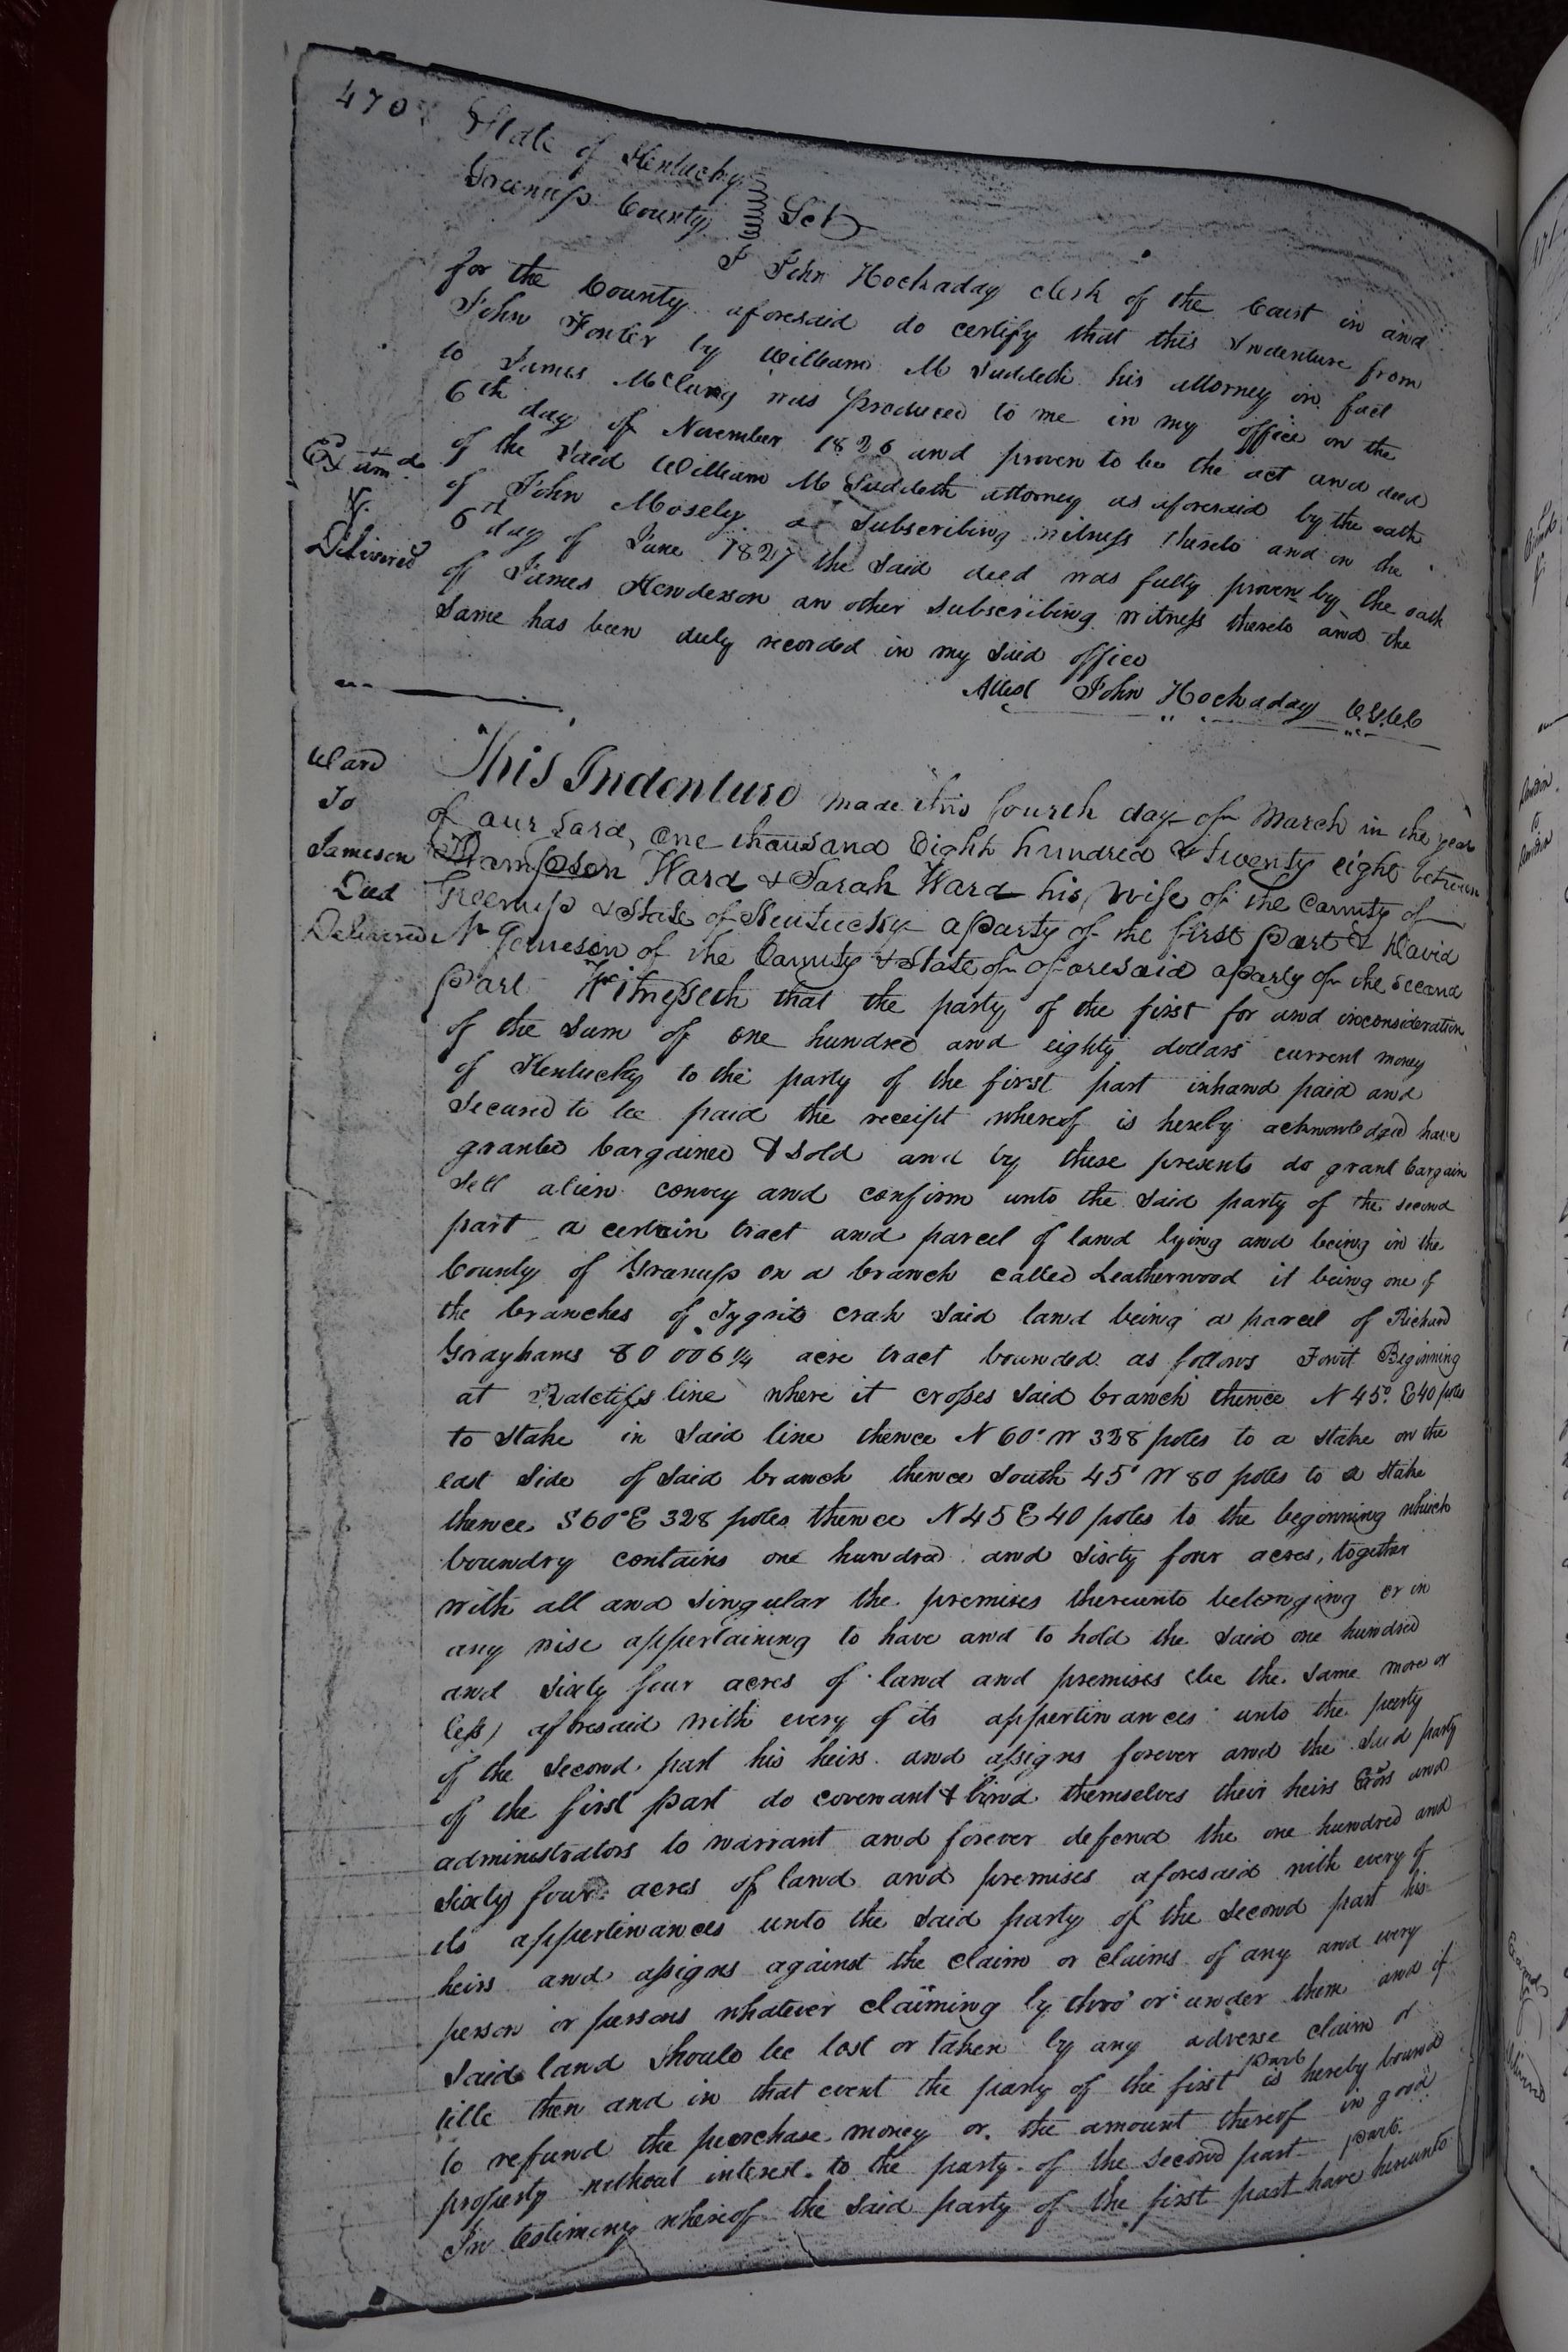 470
State of Kentucky
Greenup County Sct
I John Hockaday clerk of the Court in and
for the County aforesaid do certify that this Indenture from
John Fowler by William M Suddeth his attorney in fact
to James McClung was produced to me in my office on the
6th day of November 1826 and proven to be the act and deed
of the said William M Suddeth attorney as aforesaid by the oath
of John Mosely a subscribing witness thereto and on the
6th day of June 1827 the said deed was fully proven by the oath
of James Henderson an other subscribing witness thereto and the
same has been duly recorded in my said office
Attest John Hockaday C.G.C.C
Examd
&
Delivered
Ward
To
Jameson
Deed
Delivered
This Indenture made this fourth day of March in the year
of our Lord, one thousand Eight hundred & twenty eight between
Thompson Ward & Sarah Ward his wife of the County of
Greenup & State of Kentucky a party of the first part & David
Jameson of the County & State of aforesaid a party of the second
part Witnesseth that the party of the first for and in consideration
of the sum of one hundred and eighty dollars current money
of Kentucky to the party of the first part in hand paid and
secured to be paid the receipt whereof is hereby acknowledged have
granted bargained & sold and by these presents do grant bargain
sell alien convey and confirm unto the said party of the second
part a certain tract and parcel of land lying and being in the
County of Greenup on a branch called Leatherwood it being one of
the branches of Tygrits crek said land being a parcel of Richard
Grayhams 80 006 1/4 acre tract bounded as follows Towit Beginning
at Ratclifs line where it crosses said branch thence N 45° E 40 poles
to stake in said line thence N 60° W 328 poles to a stake on the
east side of said branch thence South 45° W 80 poles to a stake
thence S 60° E 328 poles thence N 45 E 40 poles to the beginning which
boundry contains one hundred and sixty four acres, together
with all and singular the premises thereunto belonging or in
any wise appertaining to have and to hold the said one hundred
and sixty four acres of land and premises (be the same more or
less) aforesaid with every of its appertinances unto the party
of the second part his heirs and assigns forever and the said party
of the first part do covenant & bind themselves their heirs Exors and
administrators to warrant and forever defend the one hundred and
sixty four acres of land and premises aforesaid with every of
its appertinances unto the said party of the second part his
heirs and assigns against the claim or claims of any and every
person or persons whatever claiming by thro' or under them and if
said land should be lost or taken by any adverse claim or
title then and in that event the party of the first part is hereby bound
to refund the purchase money or the amount thereof in good
property without interest to the party of the second part part.
In testimony whereof the said party of the first part have hereunto